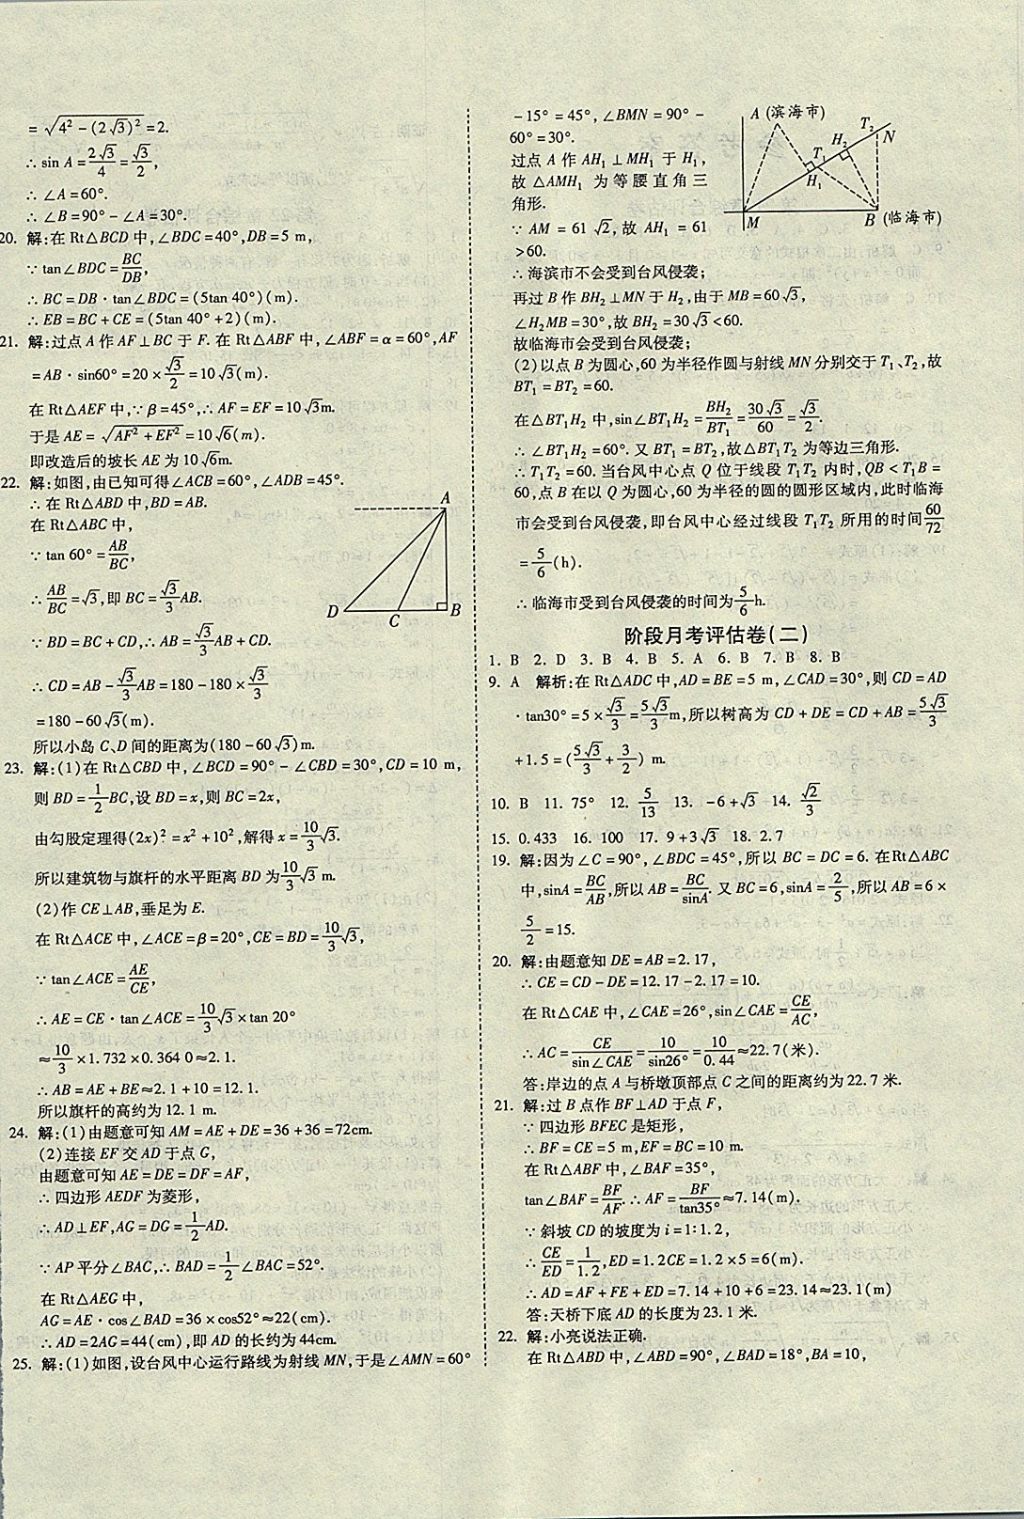 = √(4² - (2√3)²) = 2.
∴ sin A = 2√3/4 = √3/2,
∴ ∠A = 60°.
∴ ∠B = 90° - ∠A = 30°.
20. 解:在 Rt△BCD 中,∠BDC = 40°, DB = 5 m,
∵ tan∠BDC = BC/DB,
∴ BC = DB · tan∠BDC = (5tan 40°)(m).
∴ EB = BC + CE = (5tan 40° + 2)(m).
21. 解:过点 A 作 AF ⊥ BC 于 F. 在 Rt△ABF 中,∠ABF = α = 60°, AF
= AB · sin60° = 20 × √3/2 = 10√3(m).
在 Rt△AEF 中,∵ β = 45°,∴ AF = EF = 10√3m.
于是 AE = √(AF² + EF²) = 10√6(m).
即改造后的坡长 AE 为 10√6m.
22. 解:如图,由已知可得∠ACB = 60°,∠ADB = 45°.
∴ 在 Rt△ABD 中, BD = AB.
在 Rt△ABC 中,
∵ tan 60° = AB/BC,
∴ AB/BC = √3,即 BC = √3/3 AB.
∵ BD = BC + CD,∴ AB = √3/3 AB + CD.
∴ CD = AB - √3/3 AB = 180 - 180 × √3/3
= 180 - 60√3(m).
所以小岛 C、D 间的距离为(180 - 60√3)m.
A
D
C
B
23. 解:(1)在 Rt△CBD 中,∠BCD = 90° - ∠CBD = 30°, CD = 10 m,
则 BD = 1/2 BC,设 BD = x,则 BC = 2x,
由勾股定理得(2x)² = x² + 10²,解得 x = 10/3 √3.
所以建筑物与旗杆的水平距离 BD 为 10/3 √3 m.
(2)作 CE⊥AB,垂足为 E.
在 Rt△ACE 中,∠ACE = β = 20°, CE = BD = 10/3 √3,
∵ tan∠ACE = AE/CE,
∴ AE = CE · tan∠ACE = 10/3 √3 × tan 20°
≈ 10/3 × 1.732 × 0.364 0 ≈ 2.1.
∴ AB = AE + BE ≈ 2.1 + 10 = 12.1.
所以旗杆的高约为 12.1 m.
24. 解:(1)由题意可知 AM = AE + DE = 36 + 36 = 72cm.
(2)连接 EF 交 AD 于点 G,
由题意可知 AE = DE = DF = AF,
∴ 四边形 AEDF 为菱形,
∴ AD⊥EF, AG = DG = 1/2 AD.
∵ AP 平分∠BAC,∴ ∠BAD = 1/2 ∠BAC = 52°.
在 Rt△AEG 中,
AG = AE · cos∠BAD = 36 × cos52° ≈ 22(cm).
∴ AD = 2AG = 44(cm),即 AD 的长约为 44cm.
25. 解:(1)如图,设台风中心运行路线为射线 MN,于是∠AMN = 60°
- 15° = 45°,∠BMN = 90° -
60° = 30°.
过点 A 作 AH₁ ⊥ MH₁ 于 H₁,
故 △AMH₁ 为等腰直角三
角形.
∵ AM = 61√2,故 AH₁ = 61
>60.
∴ 海滨市不会受到台风侵袭;
再过 B 作 BH₂ ⊥ MN 于 H₂,由于 MB = 60√3,
∠H₂MB = 30°,故 BH₂ = 30√3 < 60.
故临海市会受到台风侵袭;
A (滨海市)
T₂
N
H₂
T₁
H₁
M
B (临海市)
(2)以点 B 为圆心,60 为半径作圆与射线 MN 分别交于 T₁、T₂,故
BT₁ = BT₂ = 60.
在△BT₁H₂ 中, sin∠BT₁H₂ = BH₂/BT₁ = 30√3/60 = √3/2.
∴ ∠BT₁H₂ = 60°. 又 BT₁ = BT₂,故△BT₁T₂ 为等边三角形.
∴ T₁T₂ = 60. 当台风中心点 Q 位于线段 T₁T₂ 内时, QB < T₁B =
60,点 B 在以 Q 为圆心,60 为半径的圆的圆形区域内,此时临海
市会受到台风侵袭,即台风中心经过线段 T₁T₂ 所用的时间 60/72
= 5/6 (h).
∴ 临海市受到台风侵袭的时间为 5/6 h.
阶段月考评估卷(二)
1. B 2. D 3. B 4. B 5. A 6. B 7. B 8. B
9. A 解析:在 Rt△ADC 中, AD = BE = 5 m,∠CAD = 30°,则 CD = AD
· tan30° = 5 × √3/3 = 5√3/3 m,所以树高为 CD + DE = CD + AB = 5√3/3
+ 1.5 = (5√3/3 + 3/2) m.
10. B 11. 75° 12. 5/13 13. -6 + √3 14. √2/3
15. 0.433 16. 100 17. 9 + 3√3 18. 2.7
19. 解:因为∠C = 90°,∠BDC = 45°,所以 BC = DC = 6. 在Rt△ABC
中, sinA = BC/AB,所以 AB = BC/sinA. 又 BC = 6, sinA = 2/5,所以 AB = 6 ×
5/2 = 15.
20. 解:由题意知 DE = AB = 2.17,
∴ CE = CD - DE = 12.17 - 2.17 = 10.
在 Rt△CAE 中,∠CAE = 26°, sin∠CAE = CE/AC,
∴ AC = CE/sin∠CAE = 10/sin26° = 10/0.44 ≈ 22.7(米).
答:岸边的点 A 与桥墩顶部点 C 之间的距离约为 22.7 米.
21. 解:过 B 点作 BF⊥AD 于点 F,
∵ 四边形 BFEC 是矩形,
∴ BF = CE = 5 m, EF = BC = 10 m.
在 Rt△ABF 中,∠BAF = 35°,
tan∠BAF = BF/AF.∴ AF = BF/tan35° ≈ 7.14(m).
∵ 斜坡 CD 的坡度为 i = 1:1.2,
∴ CE/ED = 1/1.2, ED = 1.2CE = 1.2 × 5 = 6(m).
∴ AD = AF + FE + ED = 7.14 + 10 + 6 = 23.14 ≈ 23.1(m)
答:天桥下底 AD 的长度为 23.1 米.
22. 解:小亮说法正确.
在 Rt△ABD 中,∠ABD = 90°,∠BAD = 18°, BA = 10,